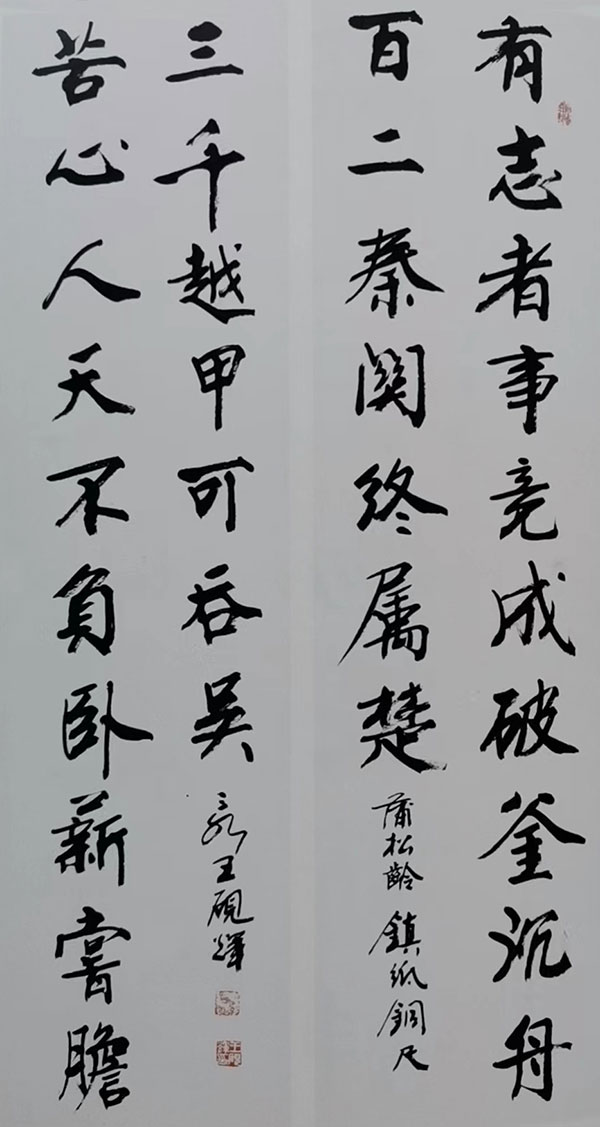 有志者事竟成破釜沉舟
百二秦関终属楚
蒲松齡 鎮紙銅尺
苦心人天不负卧薪嘗膽
三千越甲可吞吴
王硯輝